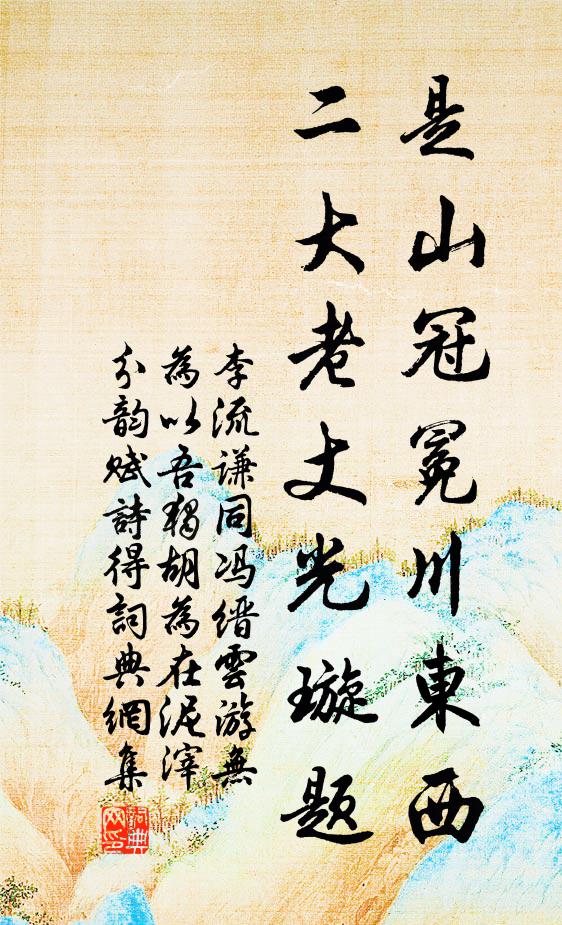 是山冠冕川東西
二大老丈光璇题
李流谦同冯缙雲游無
為以吾独胡為在泥滓
分韵赋詩得詞典網集
詞典
网印